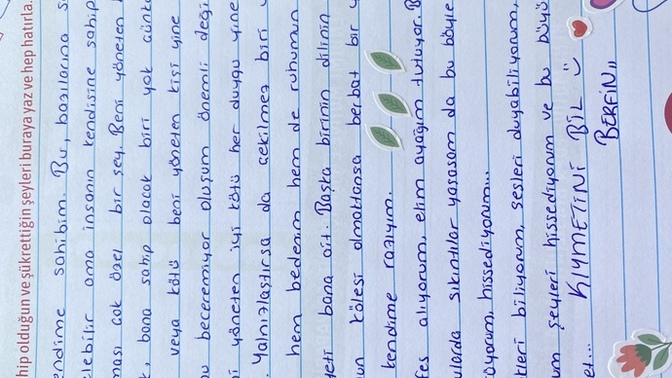 hip olduğun ve şükrettiğin şeyleri buraya yaz ve hep hatırla.
endime sahibim. Bu, bazılarına s
elebilir ama insanın kendisine sahip
ması çok özel bir şey. Beni yöneten b
, bana sahip olacak biri yok çünkü
veya kötü beni yöneten kişi yine
u beceremiyor oluşum önemli deği
i yöneten iyi kötü her duygu yine
. Yalnızlaştırsa da çekilmez biri
hem bedenim hem de ruhumun
yeti bana ait. Başka birinin dilinin
un kölesi olmaktansa berbat bir
kendime razıyım.
fes alıyorum, elim ayağım tutuyor. B
ularda sıkıntılar yaşasam da bu böyle.
üyorum, hissediyorum...
kleri biliyorum, sesleri duyabiliyorum,
m şeyleri hissediyorum ve bu büyü
et... KIYMETİNİ BİL
BERFİN,,